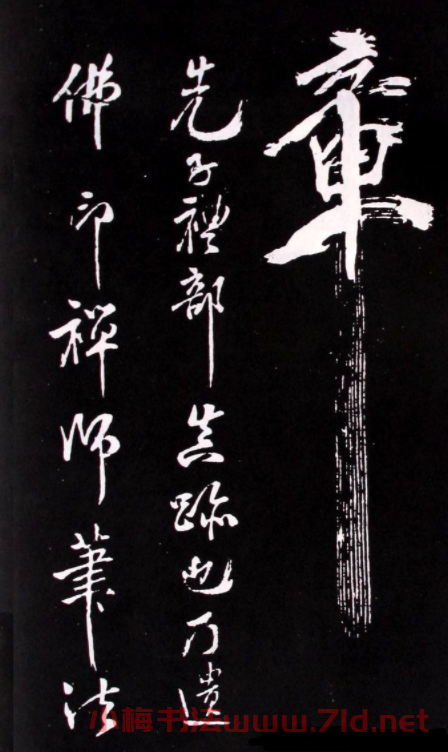 章
先子禮部真跡也乃遺
佛印禪師筆法
小梅书法www.7ld.net